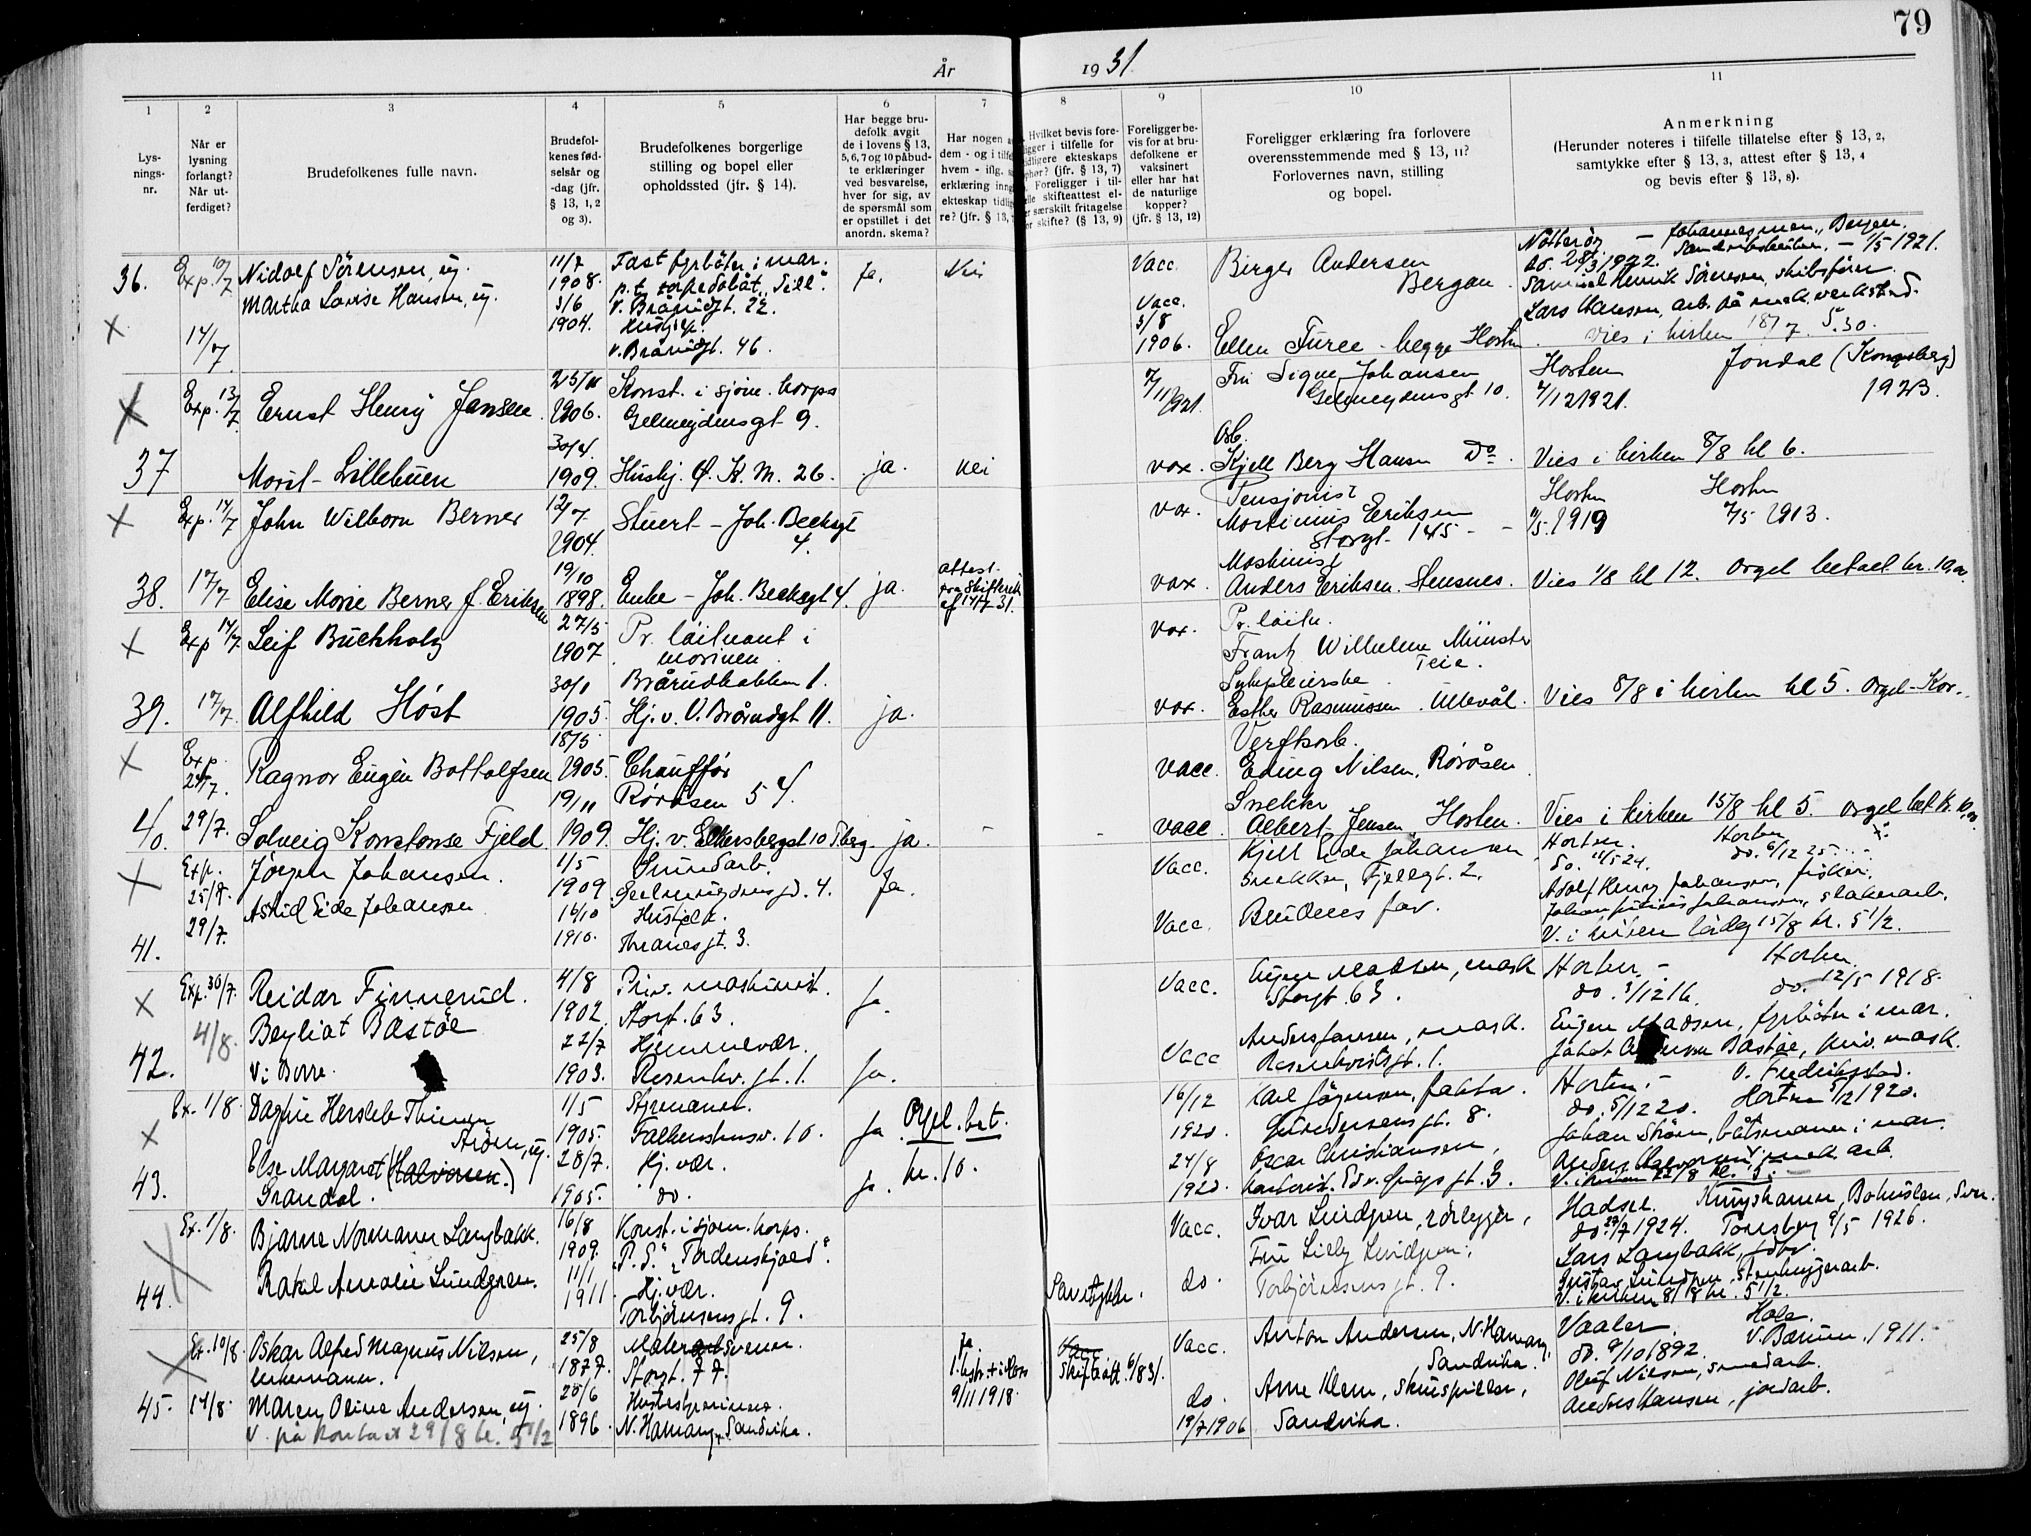 79
År 1931.
1
2
3
4
5
6
7
8
9
10
11
Lys-
nings-
nr.
Når er
lysning
forlangt?
Når ut-
ferdiget?
Brudefolkenes fulle navn.
Brudefol-
kenes fød-
selsår og
-dag (jfr.
§ 13, 1, 2
og 3).
Brudefolkenes borgerlige
stilling og bopel eller
opholdssted (jfr. § 14).
Har begge bru-
defolk avgit
de i lovens § 13,
5, 6, 7 og 10 påbud-
te erklæringer
ved besvarelse,
hver for sig, av
de spørsmål som
er opstillet i det
anordn. skema?
Har nogen a
dem - og i tilfe
hvem - iflg. s
erklæring inng
ekteskap tidlig
re? (jfr. § 13,
Hvilket bevis fore-
ligger i tilfelle for
tidligere ekteskaps
ophør? (jfr. § 13, 7)
Foreligger i til-
felle skifteattest el-
er særskilt fritagelse
or skifte? (§ 13, 9)
Foreligger be-
vis for at bru-
defolkene er
vaksinert
eller har hat
de naturlige
kopper?
(jfr. § 13, 12)
Foreligger erklæring fra forlovere
overensstemmende med § 13, 11?
Forlovernes navn, stilling
og bopel.
Anmerkning
(Herunder noteres i tilfelle tillatelse efter § 13, 2,
samtykke efter § 13, 3, attest efter § 13, 4
og bevis efter § 13, 8).
36.
Exp. 10/7
14/7.
Nidolf Sörensen, ug.
Martha Lovise Hansen, ug.
11/7
1908.
3/6
1904.
Fast fyrböter i mar.
p.t. torpedobåt "Sell".
V. Brårudgt. 22.
V. Bråriudgt. 46.
Ja.
Nei
Vacc.
Vacc.
3/8
1906.
Birger Andersen
Bergan
Ellen Furee - begge Horten
Nötteröy -
do. 28/3 1922. - 1/5 1921.
Samuel Henrik Sörensen, skibsförer.
Lars Hansen, arb. på mek. verksted.
Vies i kirken 18/7 5.30.
37
Exp. 13/7.
Ernst Henry Jansen
Morit Lillebuen
25/11
1906.
30/4.
1909.
Konst. i sjöm. korps
Gelmeydensgt 9.
Huskj. Ø. K. M. 26.
ja.
nei
7/11 1921.
vox.
Fru Signe Johansen
Gelmeydensgt 10.
Arb.
Kjell Berg Hansen Do
Horten
4/12 1921.
Jondal (Kongsberg)
1923.
Vies i kirken 8/8 kl 6.
38.
Exp. 14/7
17/7
John Wilborn Berner
Elise Marie Berner f. Eriksen
12/7.
1904.
19/10
1898.
Stuert - Joh. Beeksgt
4.
Enke - Joh. Beeksgt 4.
ja.
attest.
fra Skifterett
af 14/7-31.
vox.
vax.
Pensjonist
Martinius Eriksen
Storgt. 145
Maskinist
Anders Eriksen. Stensnes.
Horten
11/5. 1919
Horten
7/5 1913.
Vies 1/8 kl 12. Orgel betalt kr. 10,00.
39.
Exp 14/7.
17/7
Leif Buchholz
Alfhild Høst
27/5
1907
30/1
1905.
Pr. löitnant i
marinen.
Bråriudbakken 1.
Hj. v. V. Brårudgt 11.
ja.
vox.
vox.
Pr. löitn.
Frantz Wilhelm Münster
Teie.
Sykepleierske
Esther Rasmussen. Ullevål.
Vies 8/8 i kirken kl 5. Orgel-Kor.
40
Exp.
24/7.
29/7.
Ragnar Eugen Bottolfsen
Solveig Konstanse Fjeld
18/5
1905.
19/11
1909.
Chauffør
Röråsen 54.
Hj. v. Eckersbergst 10 Tbrg
ja.
-
-
vacc.
vacc.
Verftsarb.
Eding Nilsen, Röråsen
Snekker
Albert Jensen, Horten.
Vies i kirken 15/8 kl 5. Orgel bet. kr. 10,00.
41.
Exp.
25/7.
29/7.
Jørgen Johansen.
Astrid Eide Johansen
1/5
1909
16/10
1910.
Grundarb.
Geelmuydensgt. 4.
Thranesgt. 3.
Ja.
Vacc.
Vacc.
Kjell Eide Johansen
snekker, Fjellgt. 2.
Brudens far.
Horten.
do. 11/5 24.
Horten
do. 6/12 25.
Adolf Henry Johansen, fisker.
V. i kirken lördag 15/8 kl. 5 1/2.
42.
Exp. 30/7.
4/8.
Reidar Finnerud.
Bergliot Bastöe
V. i Borre.
4/8
1902.
22/7
1903.
Priv. maskinist.
Storgt. 63.
Hjemmevær.
Rosenkv. gt. 1.
Ja.
Ja.
Vacc.
Vacc
Eugen Madsen, mask
Storgt 63.
Anders Jansen, mask.
Rosenkvistsgt. 1.
Horten. -
do. 3/12 16.
Horten
do. 12/5 1918.
Eugen Madsen, fyrböter i mar.
Bastöe, priv. mask.
43.
Ex. 1/8.
Dagfin Hersleb Thinn
Ström, ug.
Else Margaret (Halvorsen.)
Grandal.
1/5
1905.
28/7.
1905.
Styrmann.
Falkenstensv. 10.
Hj. vær.
do.
Ja
ja.
Orgel. bet.
kr. 10.
16/12
1920.
24/8
1920.
Karl Jörgensen, faktor.
Gundersensgt. 8.
Oscar Christiansen,
Edv. Griegs gt. 3.
Horten. -
do. 5/12 20.
V. Fredrikstad.
Horten 5/12 1920.
Johan Ström, båtsmann i mar.
Anders Halvorsen, mek arb.
V. i kirken 22/8 kl. 5.
44.
Ex. 1/8.
Bjarne Normann Langbakk.
Rakel Amalie Lundgren.
16/8
1909.
11/1
1911.
Konst. i sjöm. korps.
P. S. "Tordenskjold".
Hj. vær.
Torbjörnsensgt. 9.
Samtykke.
Vacc.
do.
Ivar Lundgren, rörlegger,
Fru Lilly Lundgren,
Torbjörnsensgt. 9.
Hadsel.
do. 29/7 1924.
Kungshamn, Bohuslen, Sver.
Tönsberg 9/5 1926.
Lars Langbakk, fdbr.
Gustav Lundgren, stenhuggerarb.
V. i kirken 8/8 kl. 5 1/2.
45.
Ex. 10/8.
14/8.
Oskar Alfred Magnus Nilsen,
enkemann.
Maren Oline Andersen, ug.
V. på kontoret 29/8 kl. 5 1/2
25/8
1877.
20/6
1896.
Malersvenn.
Storgt. 77.
Husbestyrerinne.
N. Hamang, Sandvika.
Ja
9/11 1918.
Vacc
Skifteatt. 6/8 31.
Vacc.
do.
19/7 1906
Anton Andersen, N. Hamang,
Sandvika.
Arne Klem, skuespiller,
Sandvika.
Vaaler.
do. 9/10 1892.
Hole.
V. Bærum. 1911.
Oluf Nilsen, smedarb.
Anders Hansen, jordarb.